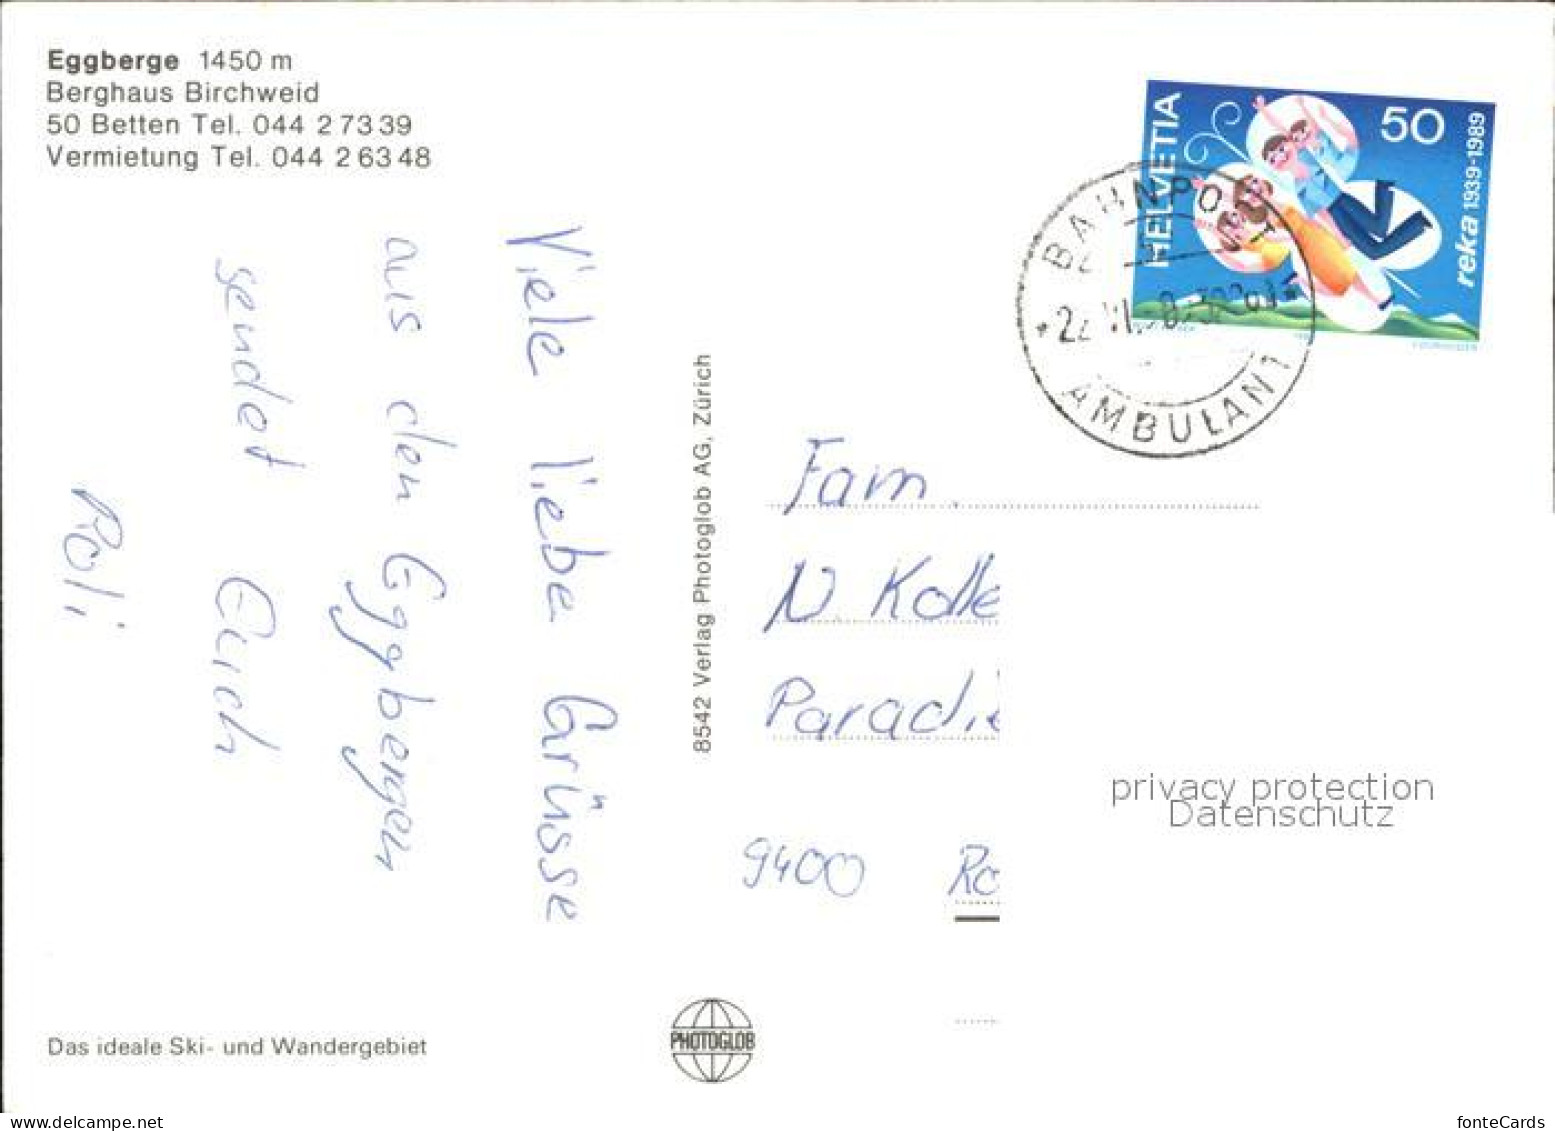 Eggberge 1450 m
Berghaus Birchweid
50 Betten Tel. 044 2 73 39
Vermietung Tel. 044 2 63 48
Viele liebe Grüsse
aus den Eggbergen
sendet Euch
Roli
Das ideale Ski- und Wandergebiet
8542 Verlag Photoglob AG, Zürich
PHOTOGLOB
HELVETIA
50
reka 1939-1989
BAHNPOST
AMBULANT
Fam.
N. Kolle
Paradi
9400 Ro
privacy protection
Datenschutz
www.delcampe.net
fonteCards